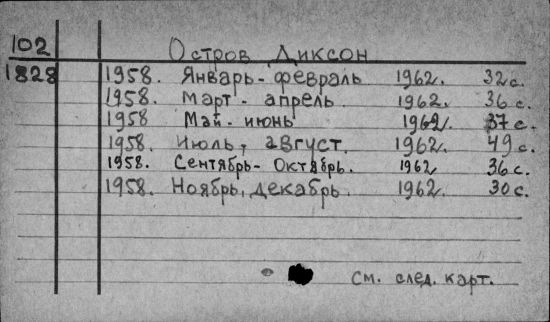 102
Остров Диксон
1828 1958. Январь - февраль 1962. 32 с.
1958. Март - апрель 1962. 36 с.
1958 Май - июнь 1962. 37 с.
1958. Июль, август. 1962. 49 с.
1958. Сентябрь - Октябрь. 1962 36 с.
1958. Ноябрь, декабрь. 1962. 30 с.
См. след. карт.